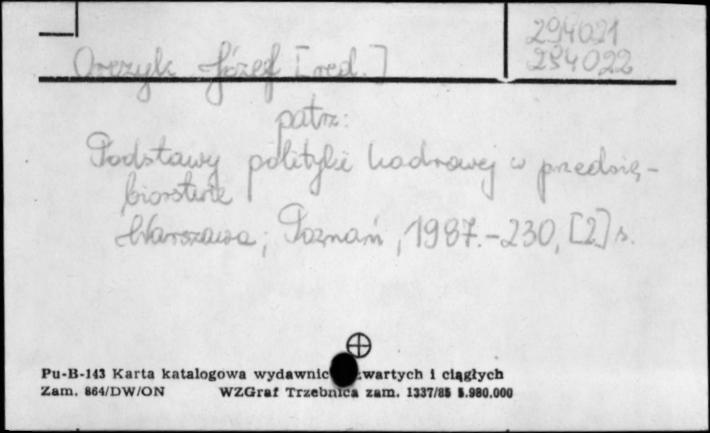 294021
294022
Orczyk Józef [red.]
patrz:
Podstawy polityki kadrowej w przedsię-
biorstwie
Warszawa; Poznań, 1987.-230, [2] s.
Pu-B-143 Karta katalogowa wydawnic wartych i ciągłych
Zam. 864/DW/ON WZGraf Trzebnica zam. 1337/85 5.980.000